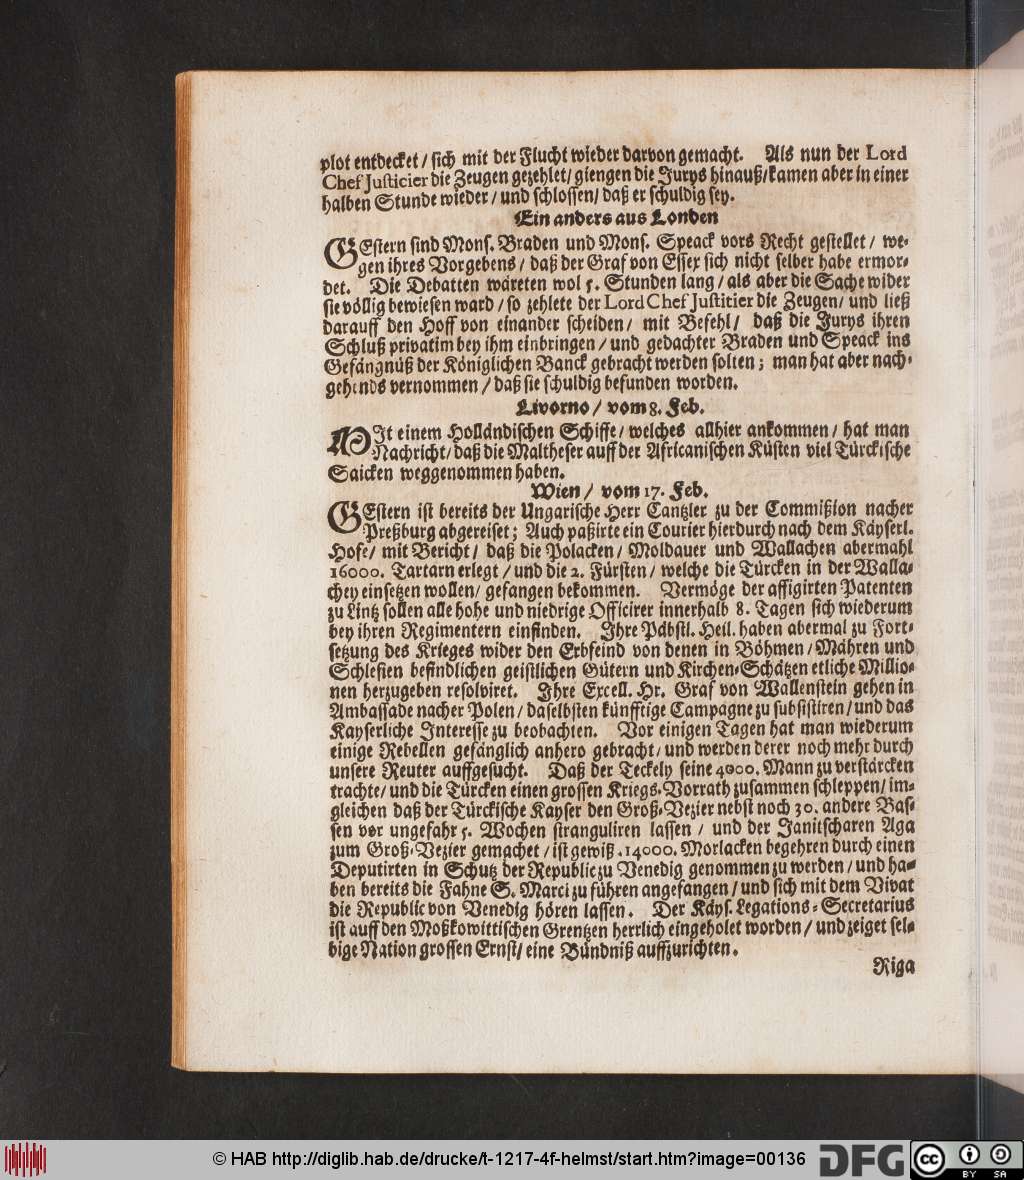 plot entdecket / sich mit der Flucht wieder darvon gemacht. Als nun der Lord
Chef Justicier die Zeugen gezehlet / giengen die Jurys hinauß / kamen aber in einer
halben Stunde wieder / und schlossen / daß er schuldig sey.
Ein anders aus Londen
GEstern sind Mons. Braden und Mons. Speack vors Recht gestellet / we-
gen ihres Vorgebens / daß der Graf von Essex sich nicht selber habe ermor-
det. Die Debatten wäreten wol 5. Stunden lang / als aber die Sache wider
sie völlig bewiesen ward / so zehlete der Lord Chef Justitier die Zeugen / und ließ
darauff den Hoff von einander scheiden / mit Befehl / daß die Jurys ihren
Schluß privatim bey ihm einbringen / und gedachter Braden und Speack ins
Gefängnüß der Königlichen Banck gebracht werden solten; man hat aber nach-
gehends vernommen / daß sie schuldig befunden worden.
Livorno / vom 8. Feb.
MIt einem Holländischen Schiffe / welches allhier ankommen / hat man
Nachricht / daß die Maltheser auff der Africanischen Küsten viel Türckische
Saicken weggenommen haben.
Wien / vom 17. Feb.
GEstern ist bereits der Ungarische Herr Cantzler zu der Commißion nacher
Preßburg abgereiset; Auch paßirte ein Courier hierdurch nach dem Käyserl.
Hofe / mit Bericht / daß die Polacken / Moldauer und Wallachen abermahl
16000. Tartarn erlegt / und die 2. Fürsten / welche die Türcken in der Walla-
chey einsetzen wollen / gefangen bekommen. Vermöge der affigirten Patenten
zu Lintz sollen alle hohe und niedrige Officirer innerhalb 8. Tagen sich wiederum
bey ihren Regimentern einfinden. Ihre Päbstl. Heil. haben abermal zu Fort-
setzung des Krieges wider den Erbfeind von denen in Böhmen / Mähren und
Schlesien befindlichen geistlichen Gütern und Kirchen-Schätzen etliche Millio-
nen herzugeben resolviret. Ihre Excell. Hr. Graf von Wallenstein gehen in
Ambassade nacher Polen / daselbsten künfftige Campagne zu subsistiren / und das
Kayserliche Interesse zu beobachten. Vor einigen Tagen hat man wiederum
einige Rebellen gefänglich anhero gebracht / und werden derer noch mehr durch
unsere Reuter auffgesucht. Daß der Teckely seine 4000. Mann zu verstärcken
trachte / und die Türcken einen grossen Kriegs-Vorrath zusammen schleppen / im-
gleichen daß der Türckische Kayser den Groß-Vezier nebst noch 30. andere Bas-
sen vor ungefahr 5. Wochen stranguliren lassen / und der Janitscharen Aga
zum Groß-Vezier gemachet / ist gewiß. 14000. Morlacken begehren durch einen
Deputirten in Schutz der Republic zu Venedig genommen zu werden / und ha-
ben bereits die Fahne S. Marci zu führen angefangen / und sich mit dem Vivat
die Republic von Venedig hören lassen. Der Käys. Legations-Secretarius
ist auff den Moßkowittischen Grentzen herrlich eingeholet worden / und zeiget sel-
bige Nation grossen Ernst / eine Bündniß auffzurichten.
Riga
© HAB http://diglib.hab.de/drucke/t-1217-4f-helmst/start.htm?image=00136
DFG
cc BY SA